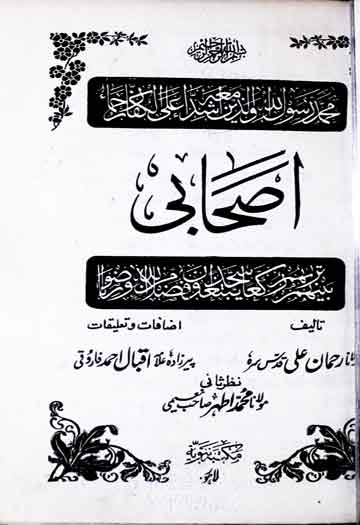 بسم الله الرحمن الرحيم
محمد رسول الله والذين معه اشداء على الكفار رحماء
اصحابی
بينهم تراهم ركعا سجدا يبتغون فضلا من الله ورضوانا
تالیف
اضافات و تعلیقات
مولانا رحمان علی قدس سرہ
پیرزادہ علامہ اقبال احمد فاروقی
نظر ثانی
مولانا محمد اطہر صاحب نعیمی
مکتبہ نبویہ
لاہور